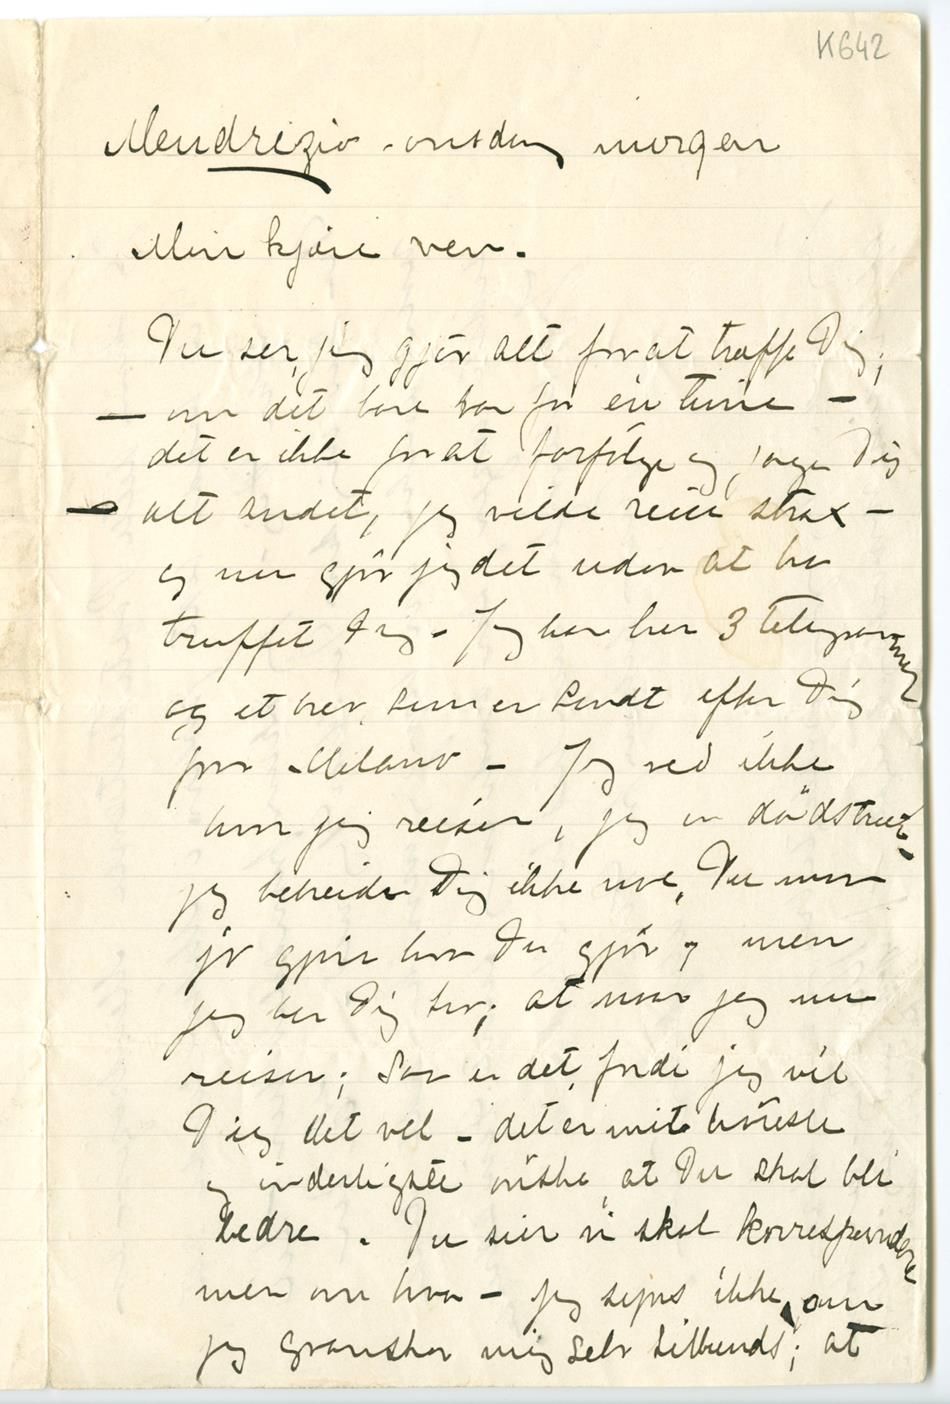 K642
Mendrizio - onsdag morgen
Min kjære ven.
Du ser, jeg gjør alt for at træffe Dig;
— om det bare var for én time —
det er ikke for at forfølge og jage Dig
— alt andet, jeg vilde reise strax —
og nu gjør jeg det uden at ha
truffet Dig - Jeg har her 3 telegrammer
og et brev, som er sendt efter Dig
fra Milano - Jeg ved ikke
hvor jeg reiser, jeg er dödstræt -
jeg bebreider Dig ikke noe, Du maa
jo gjøre hva Du gjör, men
jeg ber Dig tro; at naar jeg nu
reiser; saa er det, fordi jeg vil
Dig det vel - det er mit höieste
og inderligste önske, at Du skal bli
bedre. Du sier vi skal korrespondere
men om hva - jeg synes ikke, om
jeg gransker mig selv tilbunds; at